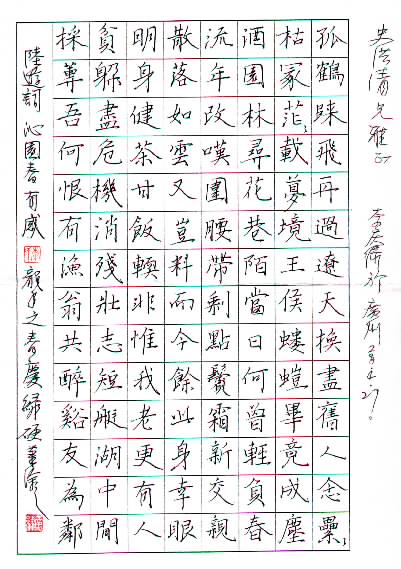 史浩清兄雅正
於廣州
孤鶴歸飛再過遼天換盡舊人念纍〻
枯冢茫〻載夢境王侯螻螘畢竟成塵
酒園林尋花巷陌當日何曾輕負春
流年改嘆圍腰帶剩點鬢霜新交親
散落如雲又豈料而今餘此身幸眼
明身健茶甘飯軟非惟我老更有人
貧躲盡危機消殘壯志短艇湖中閒
採蓴吾何恨有漁翁共醉谿友為鄰
陸遊詞 沁園春 有感 龍年之春慶綿硬筆